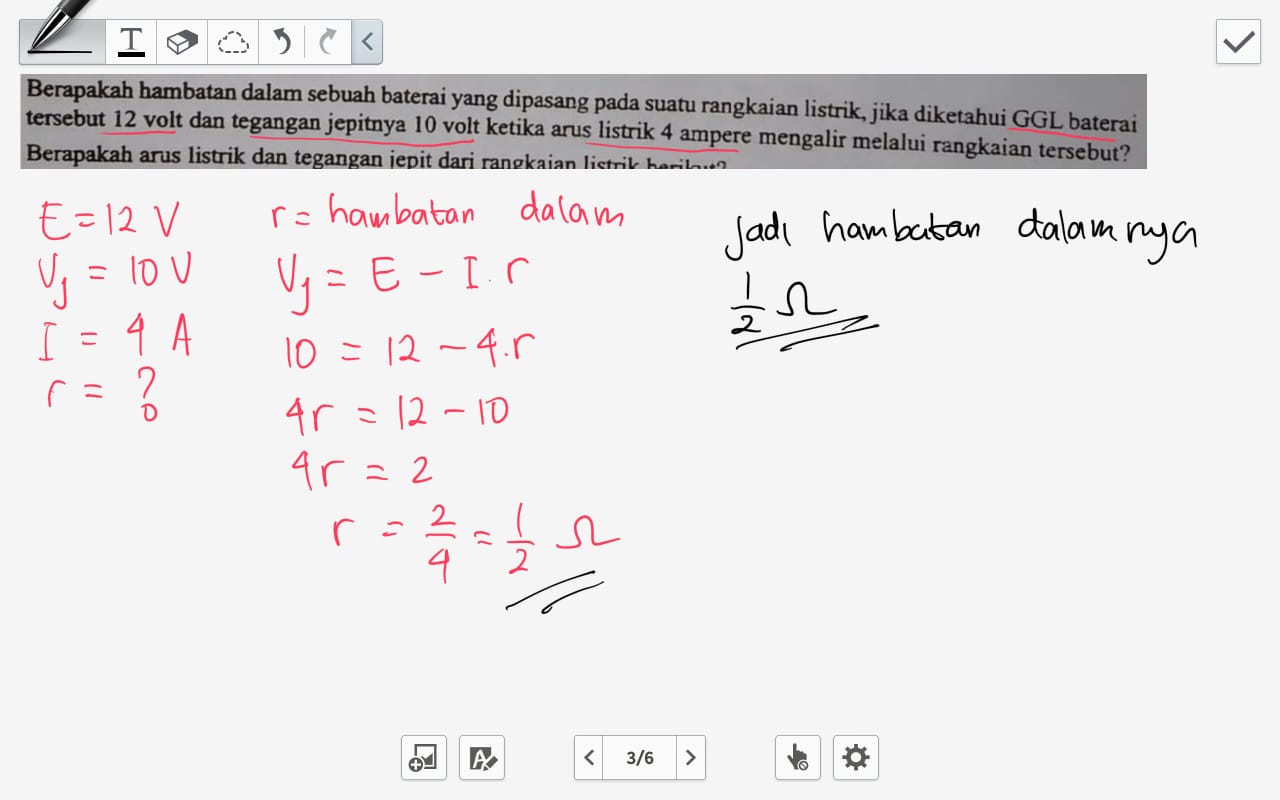 T
Berapakah hambatan dalam sebuah baterai yang dipasang pada suatu rangkaian listrik, jika diketahui GGL baterai
tersebut 12 volt dan tegangan jepitnya 10 volt ketika arus listrik 4 ampere mengalir melalui rangkaian tersebut?
Berapakah arus listrik dan tegangan jepit dari rangkaian listrik berikut?
E = 12 V
Vj = 10 V
I = 4 A
r = ?
r = hambatan dalam
Vj = E - I . r
10 = 12 - 4.r
4r = 12 - 10
4r = 2
r = 2/4 = 1/2 Ω
jadi hambatan dalamnya
1/2 Ω
A
3/6